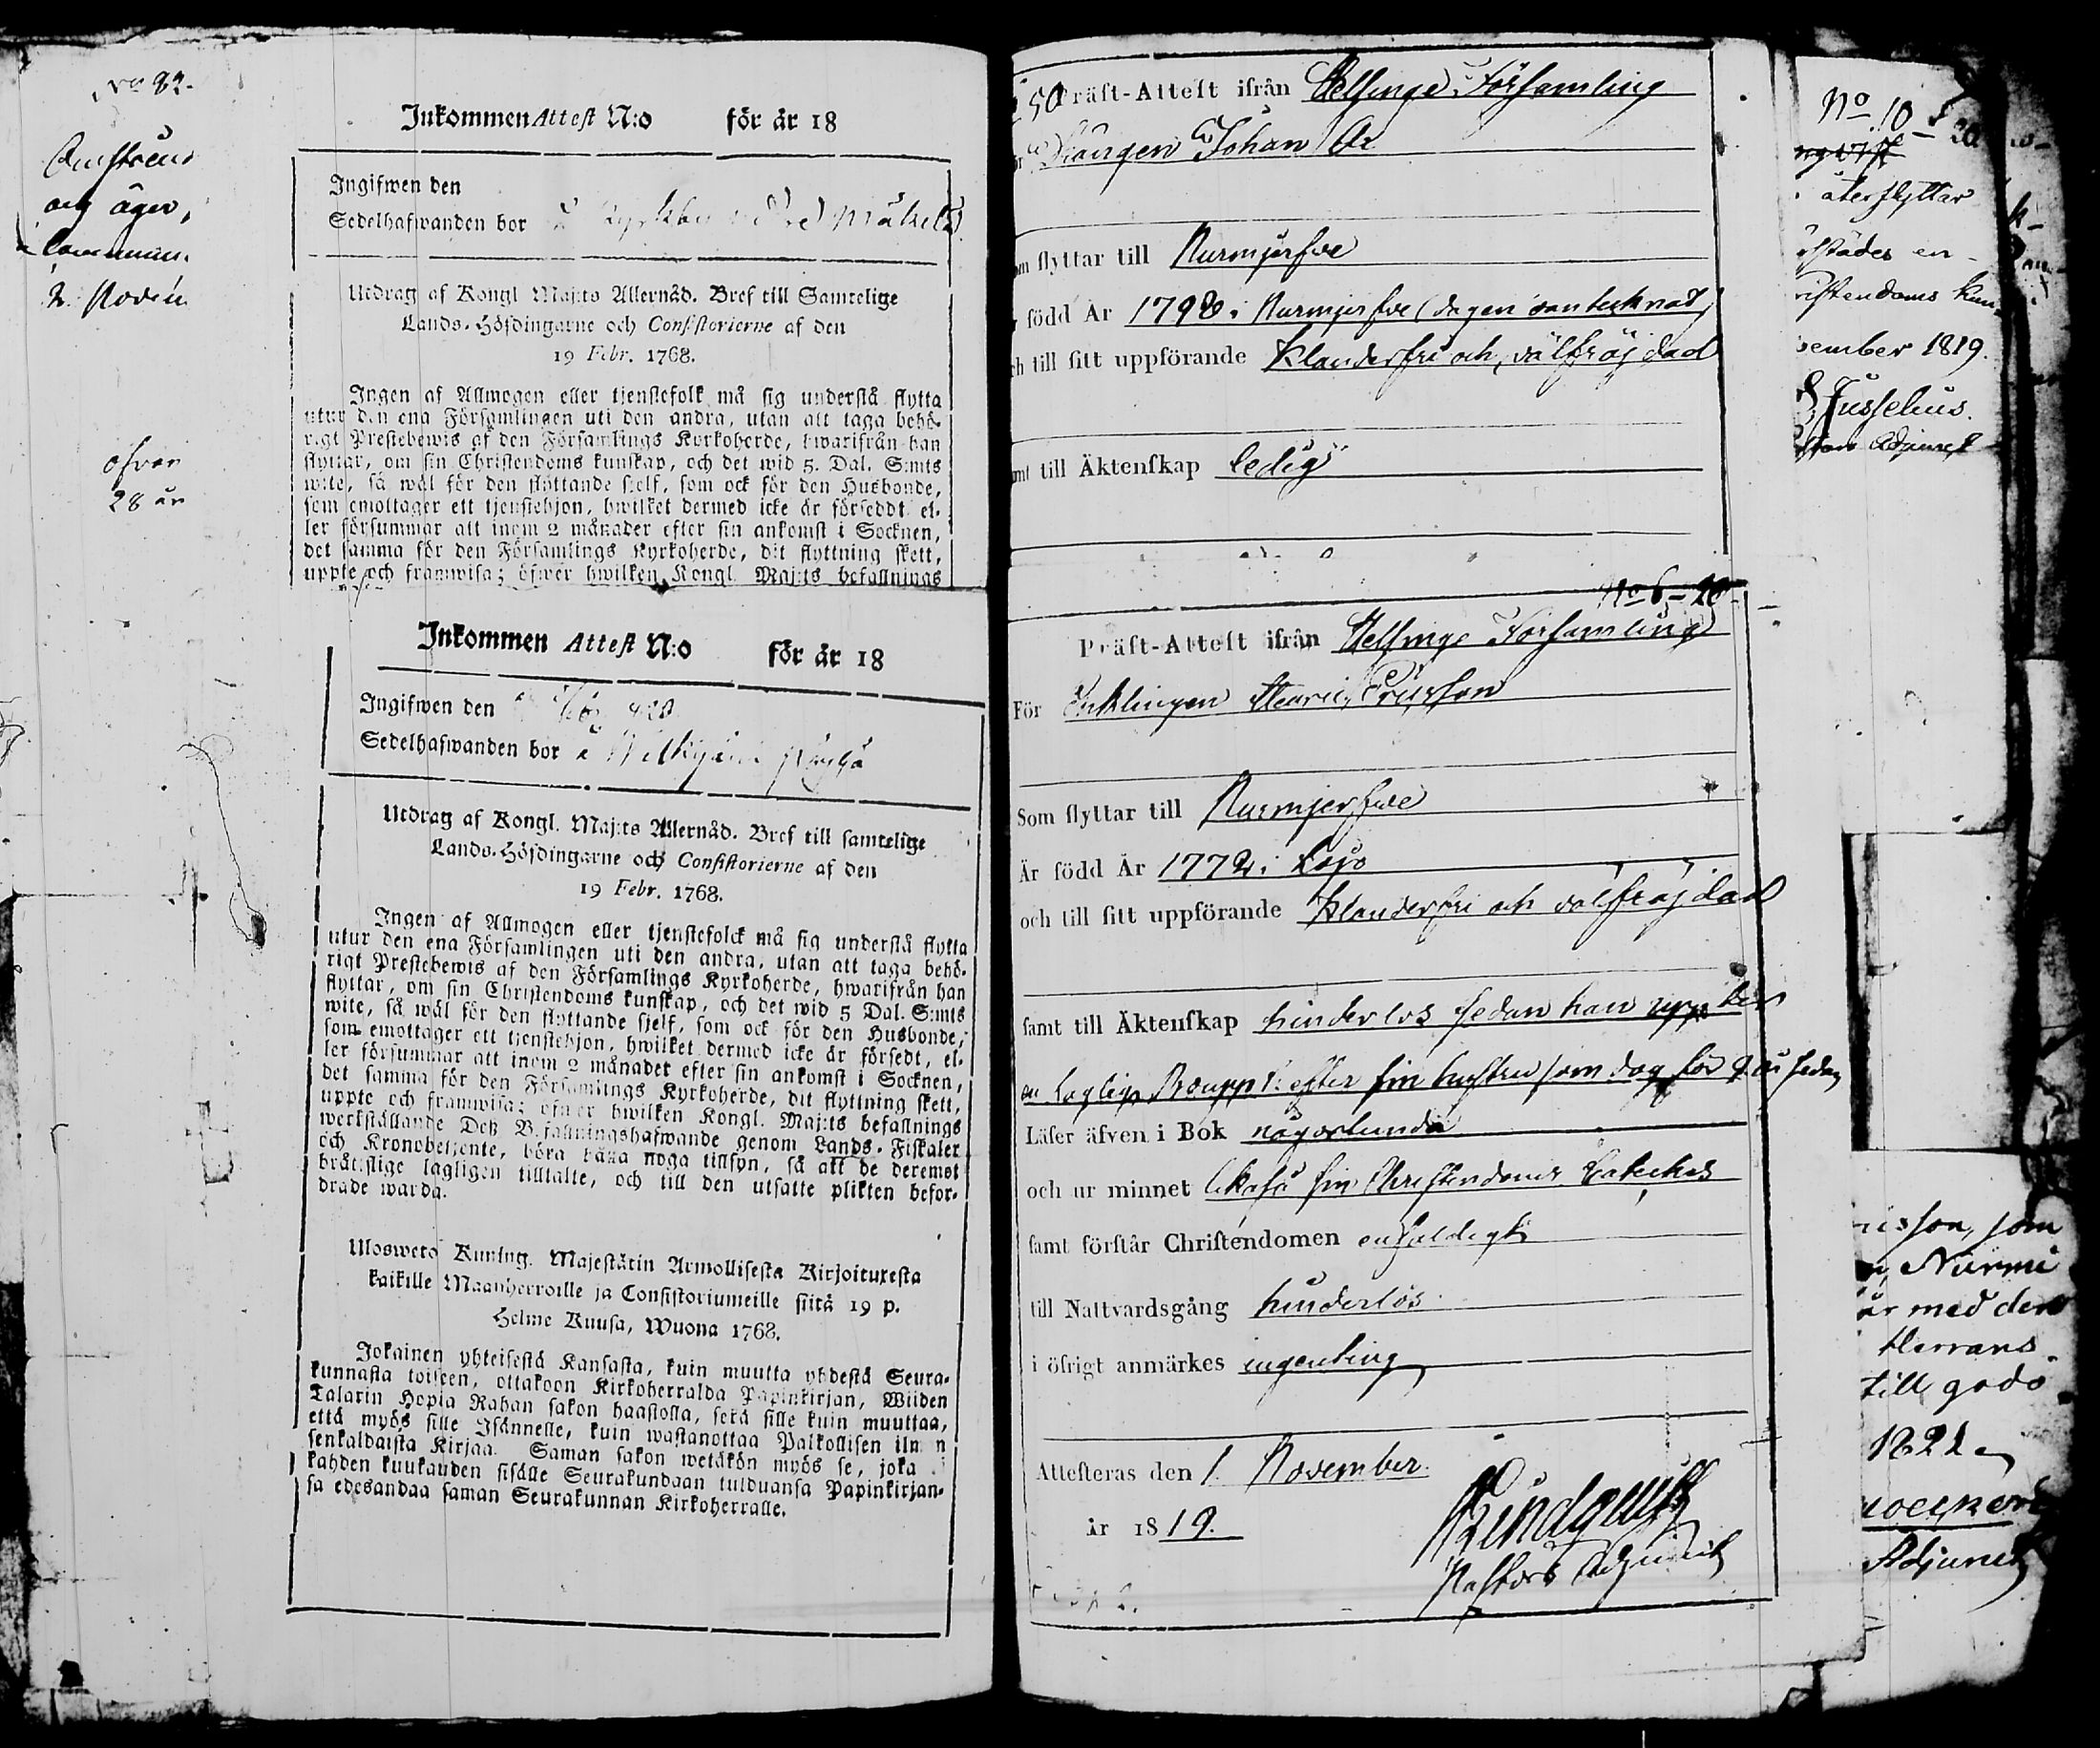 No 82.
och äger,
ofvan
28 år
Inkommen Attest N:o för år 18
Ingifwen den
Sedelhafwanden bor å Kyrkby
Utdrag af Kongl Maj:ts Allernåd. Bref till Samtelige
Lands-Höfdingarne och Consistorierne af den
19 Febr. 1768.
Ingen af Allmogen eller tjenstefolk må sig understå flytta
utur den ena Församlingen uti den andra, utan att taga behö-
rigt Prestebewis af den Församlings Kyrkoherde, hwarifrån han
flyttar, om sin Christendoms kunskap, och det wid 5. Dal. S:mts
wite, så wäl för den flyttande sjelf, som ock för den Husbonde,
som emottager ett tjenstehjon, hwilket dermed icke är förseddt el-
ler försummar att inom 2 månader efter sin ankomst i Socknen,
det samma för den Församlings Kyrkoherde, dit flyttning skett,
uppte och framwisa; öfwer hwilken Kongl. Maj:ts befallnings
Inkommen Attest N:o för år 18
Ingifwen den
Sedelhafwanden bor å
Utdrag af Kongl. Maj:ts Allernåd. Bref till samtelige
Lands-Höfdingarne och Consistorierne af den
19 Febr. 1768.
Ingen af Allmogen eller tjenstefolck må sig understå flytta
utur den ena Församlingen uti den andra, utan att taga behö-
rigt Prestebewis af den Församlings Kyrkoherde, hwarifrån han
flyttar, om sin Christendoms kunskap, och det wid 5 Dal. S:mts
wite, så wäl för den flyttande sjelf, som ock för den Husbonde,
som emottager ett tjenstehjon, hwilket dermed icke är försedt, el-
ler försummar att inom 2 månadet efter sin ankomst i Socknen,
det samma för den Församlings Kyrkoherde, dit flyttning skett,
uppte och framwisa; öfwer hwilken Kongl. Maj:ts befallnings
werkställande Deß Befallningshafwande genom Lands-Fiskaler
och Kronobetjente, böra hålla noga tillsyn, så att de deremot
bråttslige lagligen tilltalte, och till den utsatte plikten befor-
drade warda.
Ulosweto Kuning. Majestätin Armollisesta Kirjoituxesta
kaikille Maanherroille ja Consistoriumeille siitä 19 p.
Helme Kuusa, Wuona 1768.
Jokainen yhteisestä Kansasta, kuin muutta yhdestä Seura-
kunnasta toiseen, ottakoon Kirkoherralda Papinkirjan, Wiiden
Talarin Hopia Rahan sakon haastolla, sekä sille kuin muuttaa,
että myös sille Isännelle, kuin wastanottaa Palkollisen ilman
senkaldaista Kirjaa. Saman sakon wetäkön myös se, joka ei
kahden kuukauden sisälle Seurakundaan tulduansa Papinkirjan-
sa edesandaa saman Seurakunnan Kirkoherralle.
50 Präst-Attest ifrån Helsinge Församling
Johan
om flyttar till Nurmjerfwe
född År 1798 i Nurmjerfwe (dagen oantecknad)
och till sitt uppförande Klanderfri och välfräjdad
samt till Äktenskap ledig
No 6 - 20
Präst-Attest ifrån Helsinge Församling
För Inhlingen Henric Ericsson
Som flyttar till Nurmjerfwe
Är född År 1772 i Lojo
och till sitt uppförande Klanderfri och välfräjdad
samt till Äktenskap hinderlös sedan han uppter
en laglig Bouppt: efter sin hustru som dog för 9 år sedan
Läser äfven i Bok någorlunda
och ur minnet likaså sin Christendoms Cateches
samt förstår Christendomen enfaldigt
till Nattvardsgång hinderlös
i öfrigt anmärkes ingenting
Attesteras den 1. November
år 1819.
Pastors Adjunct
No. 10 - 20
återflyttar
städes en
ristendoms kun-
vember 1819.
Jusselius.
Adjunct
risson, som
Nurmi
är med den
Herrans
till godo
1821
Adjunct